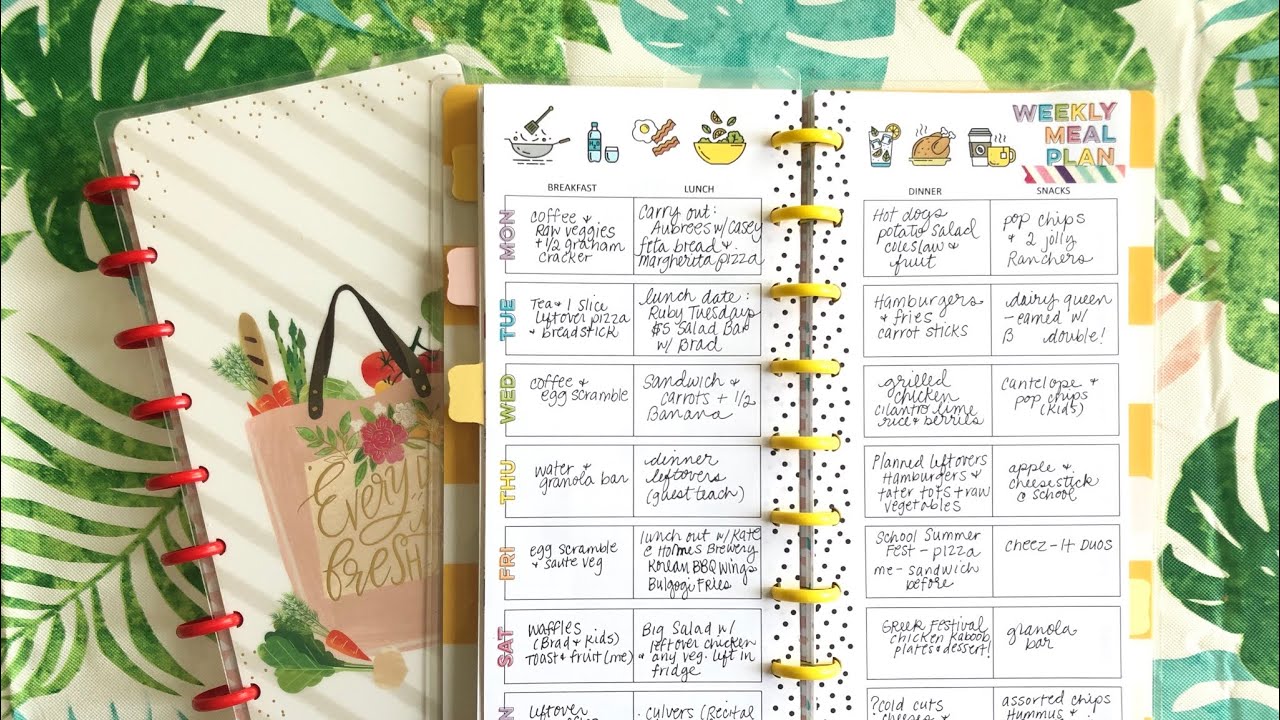 WEEKLY
MEAL
PLAN
BREAKFAST
LUNCH
DINNER
SNACKS
MON
coffee &
Raw veggies
+ 1/2 graham
cracker
Carry out:
Aubrees w/Casey
feta bread &
margherita pizza
Hot dogs
potato salad
coleslaw &
fruit
pop chips
& 2 jolly
Ranchers
TUE
Tea & 1 slice
leftover pizza
& breadstick
lunch date:
Ruby Tuesdays
$5 Salad Bar
w/ Brad
Hamburgers
& fries
carrot sticks
dairy queen
- earned w/
B double!
WED
coffee &
egg scramble
Sandwich &
carrots + 1/2
Banana
grilled
chicken
cilantro lime
rice & berries
cantelope &
pop chips
(kids)
THU
water &
granola bar
dinner
leftovers
(guest teach)
Planned leftovers
Hamburgers &
tater tots + raw
vegetables
apple &
cheesestick
@ school
FRI
egg scramble
& saute veg
lunch out w/Kate
@ Homes Brewery
Korean BBQ Wings
Bulgogi Fries
School Summer
Fest - pizza
me - sandwich
before
Cheez-It Duos
SAT
Waffles
(Brad & kids)
Toast & fruit (me)
Big Salad w/
leftover chicken
& any veg. left in
fridge
Greek Festival
chicken kabob
plates & dessert!
granola
bar
N
leftover
Culvers (Recital
?cold cuts
cheeses &
assorted chips
Hummus &
Every
fresh